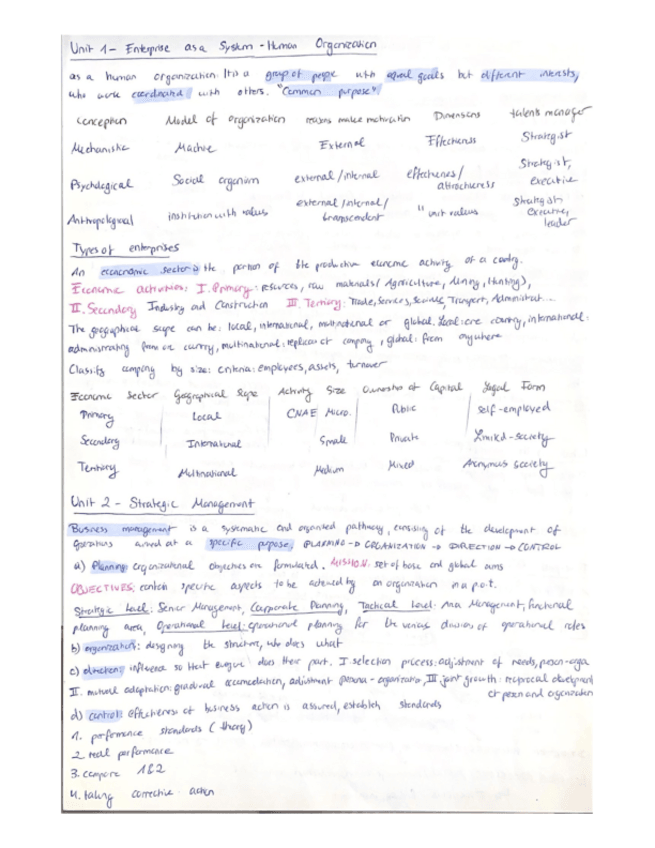 Unit 1 - Enterprise as a System - Human Organization
as a human organization. It is a group of people with equal goals but different interests,
who work coordinated with others. "Common purpose"
conception Model of organization reasons make motivation Dimensions talents manager
Mechanistic Machine External Effectiveness Strategist
Psychological Social organism external/internal effectiveness/ attractiveness Strategist, executive
Anthropological institution with values external/internal/ transcendent " unit values strategist executive, leader
Types of enterprises
An economic sector is the portion of the productive economic activity of a country.
Economic activities: I. Primary: resources, raw materials/ Agriculture, Mining, Hunting),
II. Secondary Industry and Construction III. Tertiary: Trade, Services, Transport, Administrat...
The geographical scope can be: local, international, multinational or global. Local: one country, international:
administrating from one country, multinational: replicas of company, global: from anywhere
Classify company by size: criteria: employees, assets, turnover
Economic Sector Geographical Scope Activity Size Ownership of Capital Legal Form
Primary Local CNAE Micro. Public self-employed
Secondary International Small Private Limited-society
Tertiary Multinational Medium Mixed Anonymus society
Unit 2 - Strategic Management
Business management is a systematic and organised pathway, consisting of the development of
operations aimed at a specific purpose, PLANNING -> ORGANIZATION -> DIRECTION -> CONTROL
a) Planning: organizational objectives are formulated. MISSION: set of base and global aims
OBJECTIVES: contain specific aspects to be achieved by an organization in a p.o.t.
Strategic Level: Senior Management, Corporate Planning, Tactical Level: Area Management, functional
planning area, Operational level: operational planning for the various divisions of operational roles
b) organization: designing the structure, who does what
c) direction: influence so that everyone does their part. I. selection process: adjustment of needs, person-orga
II. mutual adaptation: gradual accomodation, adjustment persona - organizatio, III. joint growth: reciprocal development
of person and organization
d) control: effectiveness of business action is assured, establish standards
1. performance standards (theory)
2. real performance
3. compare 1&2
4. taking corrective action